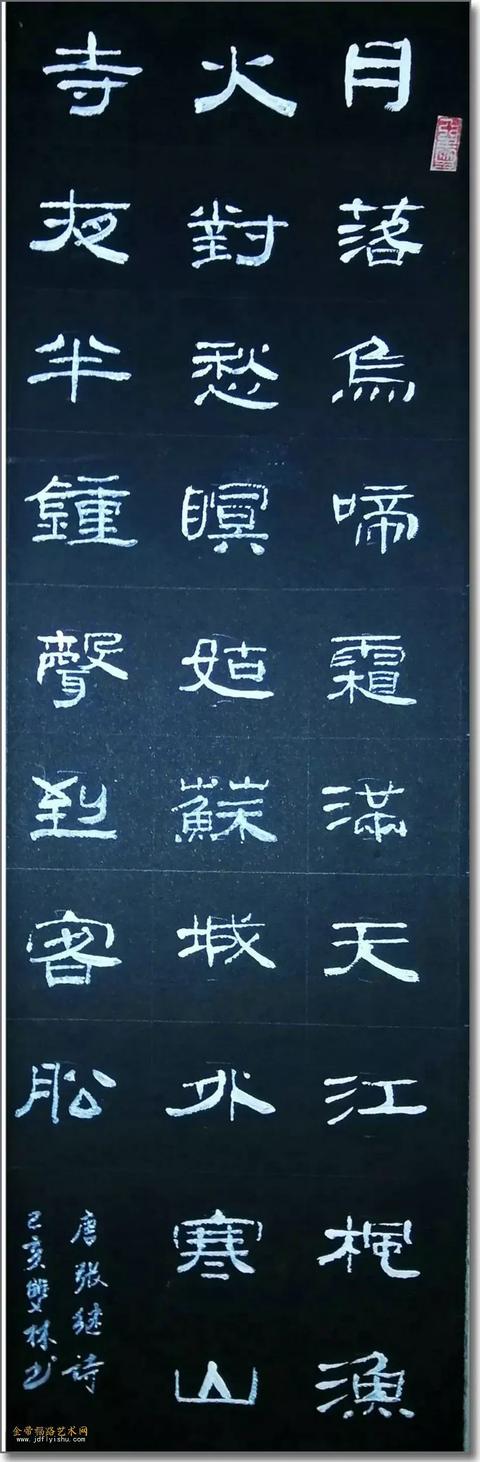 月落烏啼霜滿天江楓漁
火對愁瞑姑蘇城外寒山
寺夜半鍾聲到客船
唐張继诗
己亥雙林书
金带福路艺术网
www.jdflyishu.com